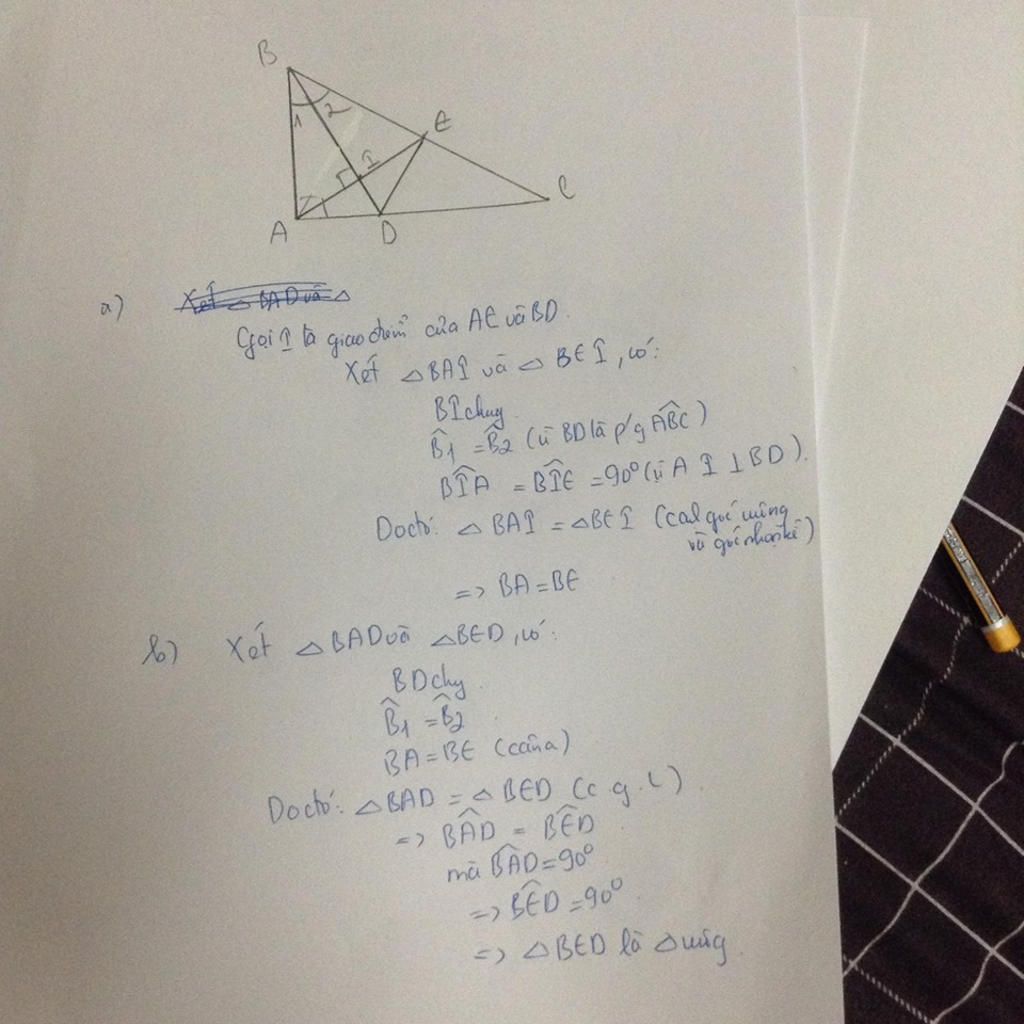 B
1 2
E
I
C
A
D
a) Xét △ BAD và △
Gọi I là giao điểm của AE và BD.
Xét △BAI và △ BEI, có:
BI chug
B̂1 = B̂2 (vì BD là p'g ABĈ)
BÎA = BÎE = 90° (vì A I ⊥ BD).
Do đó: △ BAI = △BEI (cạh góc vuông
và góc nhọn kề)
=> BA = BE
b) Xét △BAD và △BED, có:
BD chg.
B̂1 = B̂2
BA = BE (câu a)
Do đó: △BAD = △ BED (c.g.c).
=> BÂD = BÊD
mà BÂD = 90°
=> BÊD = 90°
=> △BED là △ vuôg.